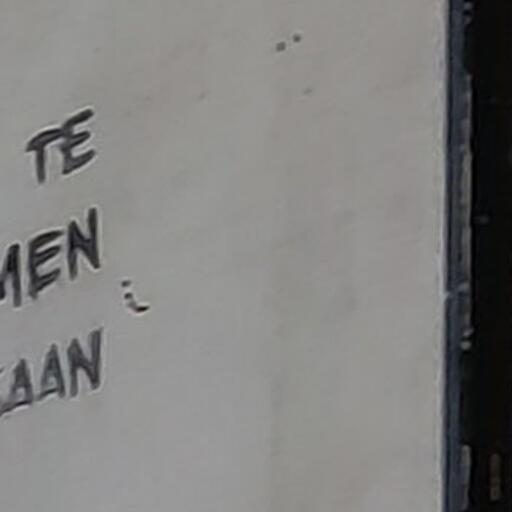 TE
MEN
AAN